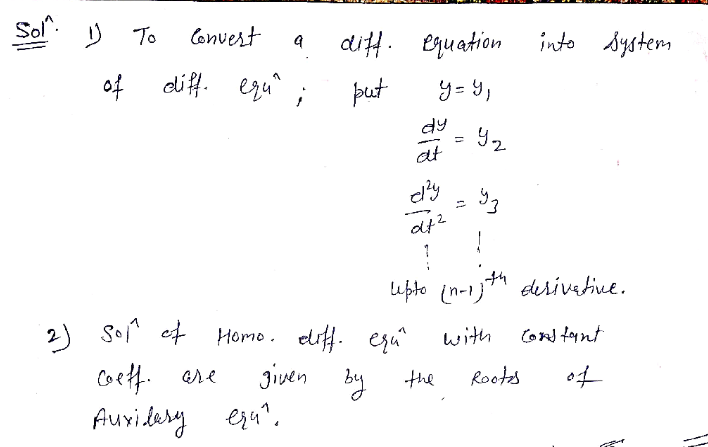 Solⁿ. 1) To Convert a diff. equation into system
of diff. equⁿ ; put y = y₁
dy/dt = y₂
d²y/dt² = y₃
upto (n-1)th derivative.
2) Solⁿ of Homo. diff. equⁿ with constant
Coeff. are given by the Roots of
Auxilary equⁿ.